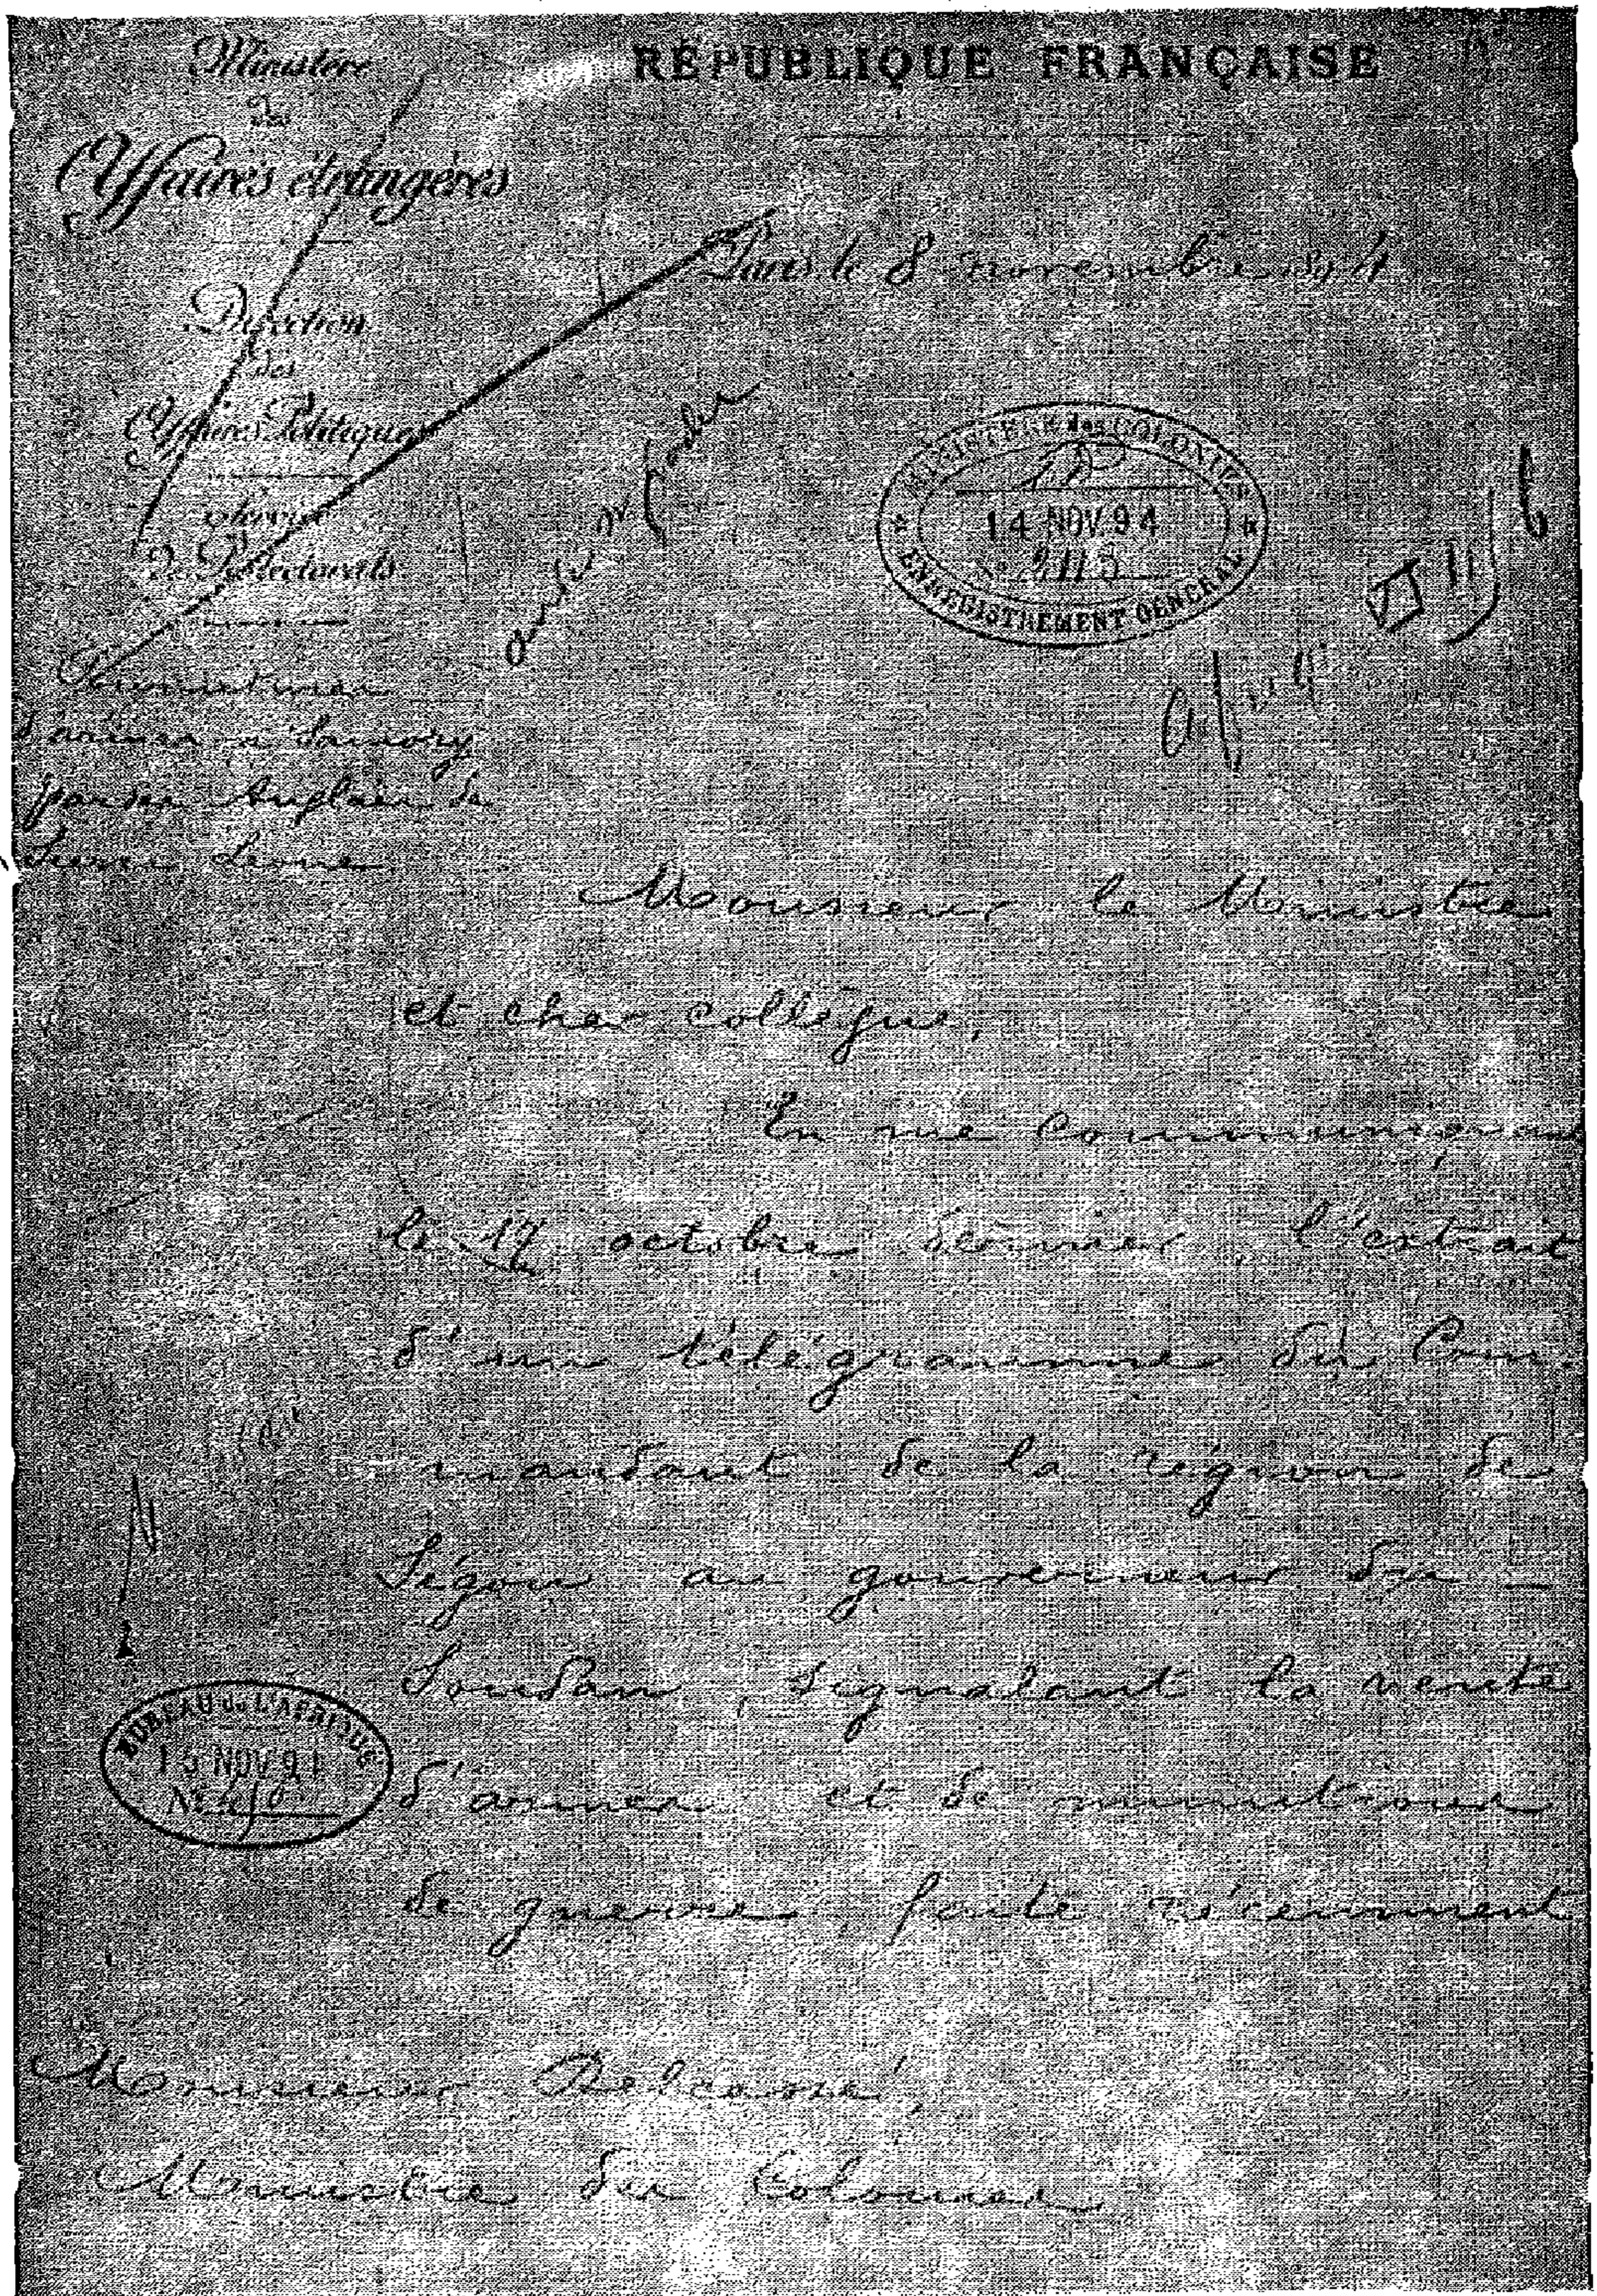 RÉPUBLIQUE FRANÇAISE
Ministère
des
Affaires étrangères
Direction
des
Affaires Politiques
Service
des Protectorats
Paris, le 8 novembre 1894
MINISTÈRE des COLONIES
14 NOV. 94
N° 2113
ENREGISTREMENT GÉNÉRAL
Fournitures
d'armes à Samory
par des Anglais de
Sierra Leone
Monsieur le Ministre
et cher collègue,
En me communiquant
le 17 octobre dernier, l'extrait
d'un télégramme du Com-
mandant de la région de
Ségou au gouverneur du
Soudan, signalant la vente
d'armes et de munitions
de guerre faite récemment
BUREAU de L'AFRIQUE
15 NOV 94
Monsieur Delcassé,
Ministre des Colonies